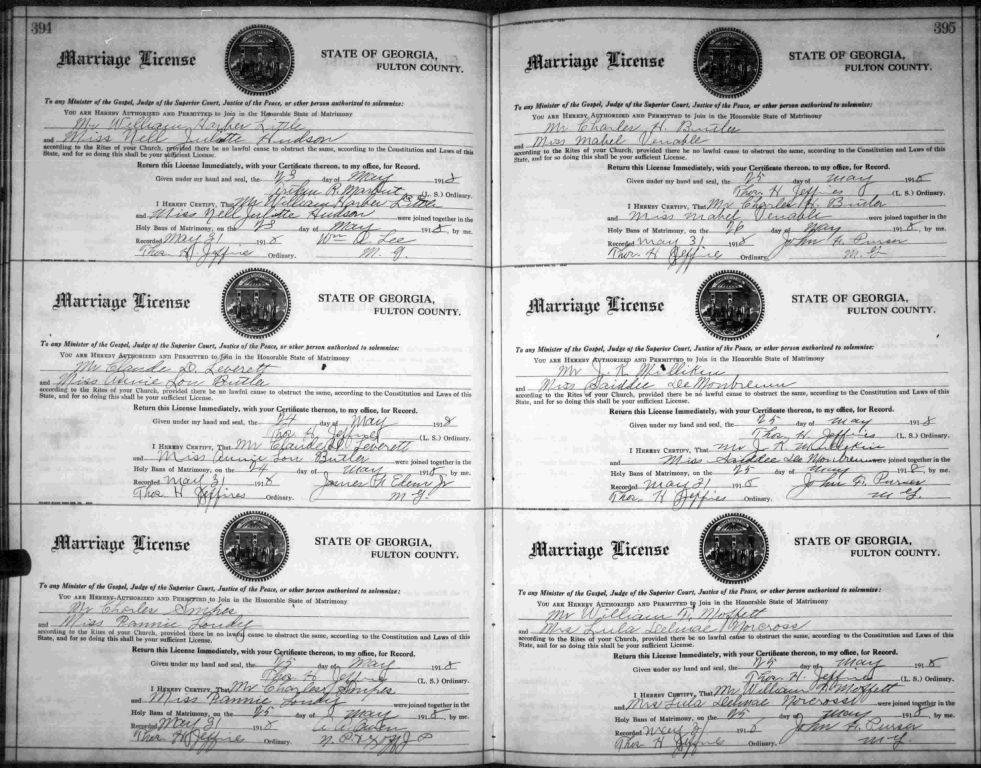 394
Marriage License
STATE OF GEORGIA,
FULTON COUNTY.
To any Minister of the Gospel, Judge of the Superior Court, Justice of the Peace, or other person authorized to solemnize:
YOU ARE HEREBY AUTHORIZED AND PERMITTED to Join in the Honorable State of Matrimony
Mr William Harber Little
and Miss Nell Juliette Hudson
according to the Rites of your Church, provided there be no lawful cause to obstruct the same, according to the Constitution and Laws of this
State, and for so doing this shall be your sufficient License.
Return this License Immediately, with your Certificate thereon, to my office, for Record.
Given under my hand and seal, the 23 day of May 1918
(L. S.) Ordinary.
I HEREBY CERTIFY, That Mr William Harber Little
and Miss Nell Juliette Hudson were joined together in the
Holy Bans of Matrimony, on the 23 day of May 1918, by me.
Recorded May 31 1918 Wm D Lee
Thos H Jeffries Ordinary. M. G.
Marriage License
STATE OF GEORGIA,
FULTON COUNTY.
To any Minister of the Gospel, Judge of the Superior Court, Justice of the Peace, or other person authorized to solemnize:
YOU ARE HEREBY AUTHORIZED AND PERMITTED to Join in the Honorable State of Matrimony
Mr Claude D. Leverett
and Miss Annie Lou Butler
according to the Rites of your Church, provided there be no lawful cause to obstruct the same, according to the Constitution and Laws of this
State, and for so doing this shall be your sufficient License.
Return this License Immediately, with your Certificate thereon, to my office, for Record.
Given under my hand and seal, the 24 day of May 1918
Thos H Jeffries (L. S.) Ordinary.
I HEREBY CERTIFY, That Mr Claude D Leverett
and Miss Annie Lou Butler were joined together in the
Holy Bans of Matrimony, on the 24 day of May 1918, by me.
Recorded May 31 1918 James H
Thos H Jeffries Ordinary. M. G.
Marriage License
STATE OF GEORGIA,
FULTON COUNTY.
To any Minister of the Gospel, Judge of the Superior Court, Justice of the Peace, or other person authorized to solemnize:
YOU ARE HEREBY AUTHORIZED AND PERMITTED to Join in the Honorable State of Matrimony
Mr Charles
and Miss Fannie
according to the Rites of your Church, provided there be no lawful cause to obstruct the same, according to the Constitution and Laws of this
State, and for so doing this shall be your sufficient License.
Return this License Immediately, with your Certificate thereon, to my office, for Record.
Given under my hand and seal, the 25 day of May 1918
Thos H Jeffries (L. S.) Ordinary.
I HEREBY CERTIFY, That Mr Charles
and Miss Fannie were joined together in the
Holy Bans of Matrimony, on the 25 day of May 1918, by me.
Recorded May 31 1918
Thos H Jeffries Ordinary. J P
395
Marriage License
STATE OF GEORGIA,
FULTON COUNTY.
To any Minister of the Gospel, Judge of the Superior Court, Justice of the Peace, or other person authorized to solemnize:
YOU ARE HEREBY AUTHORIZED AND PERMITTED to Join in the Honorable State of Matrimony
Mr Charles H.
and Miss Mabel Venable
according to the Rites of your Church, provided there be no lawful cause to obstruct the same, according to the Constitution and Laws of this
State, and for so doing this shall be your sufficient License.
Return this License Immediately, with your Certificate thereon, to my office, for Record.
Given under my hand and seal, the 25 day of May 1918
Thos H Jeffries (L. S.) Ordinary.
I HEREBY CERTIFY, That Mr Charles H
and Miss Mabel Venable were joined together in the
Holy Bans of Matrimony, on the 26 day of May 1918, by me.
Recorded May 31 1918 John F. Purser
Thos H Jeffries Ordinary. M. G.
Marriage License
STATE OF GEORGIA,
FULTON COUNTY.
To any Minister of the Gospel, Judge of the Superior Court, Justice of the Peace, or other person authorized to solemnize:
YOU ARE HEREBY AUTHORIZED AND PERMITTED to Join in the Honorable State of Matrimony
Mr J. R. Millikin
and Miss Saiddee
according to the Rites of your Church, provided there be no lawful cause to obstruct the same, according to the Constitution and Laws of this
State, and for so doing this shall be your sufficient License.
Return this License Immediately, with your Certificate thereon, to my office, for Record.
Given under my hand and seal, the 25 day of May 1918
Thos H Jeffries (L. S.) Ordinary.
I HEREBY CERTIFY, That Mr J. R. Millikin
and Miss Saiddee were joined together in the
Holy Bans of Matrimony, on the 25 day of May 1918, by me.
Recorded May 31 1918 John F. Purser
Thos H Jeffries Ordinary. M. G.
Marriage License
STATE OF GEORGIA,
FULTON COUNTY.
To any Minister of the Gospel, Judge of the Superior Court, Justice of the Peace, or other person authorized to solemnize:
YOU ARE HEREBY AUTHORIZED AND PERMITTED to Join in the Honorable State of Matrimony
Mr William T. Moffett
and Mrs Lula Norcross
according to the Rites of your Church, provided there be no lawful cause to obstruct the same, according to the Constitution and Laws of this
State, and for so doing this shall be your sufficient License.
Return this License Immediately, with your Certificate thereon, to my office, for Record.
Given under my hand and seal, the 25 day of May 1918
Thos H. Jeffries (L. S.) Ordinary.
I HEREBY CERTIFY, That Mr William T. Moffett
and Mrs Lula Norcross were joined together in the
Holy Bans of Matrimony, on the 25 day of May 1918, by me.
Recorded May 31 1918 John F. Purser
Thos H Jeffries Ordinary. M. G.